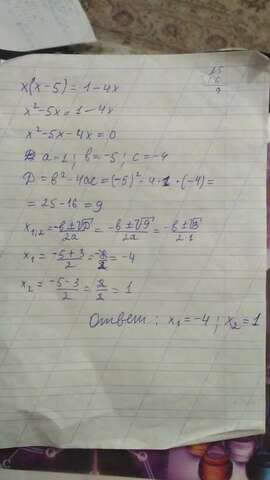 x(x-5)=1-4x
x²-5x=1-4x
x²-5x-4x=0
a=1; b=-5; c=-4
D=b²-4ac=(-5)²-4·1·(-4)=
=25-16=9
x₁,₂=(-b±√D)/2a=(-b±√9)/2a=(-b±√3)/2·1
x₁=(-5+3)/2=-8/2=-4
x₂=(-5-3)/2=2/2=1
Ответ: x₁=-4; x₂=1